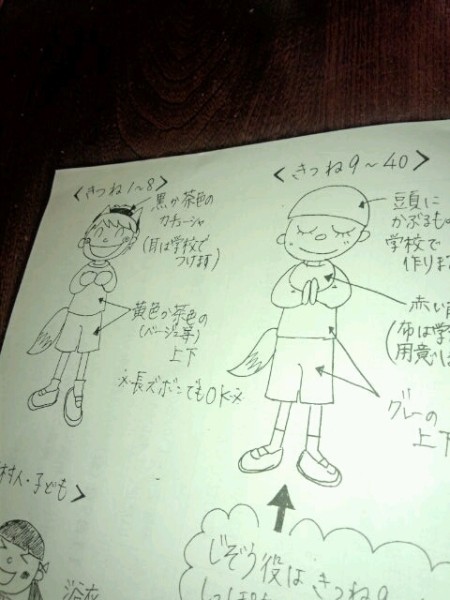 <きつね1~8>
黒か茶色の
カチューシャ
(耳は学校で
つけます)
黄色か茶色の
(ベージュ等)
上下
※長ズボンでもOK※
<きつね9~40>
頭に
かぶるもの
学校で
作ります
赤い
(布は学
用意
グレーの
上下
村人・子ども>
浴衣
じぞう役は きつね9
しっぽ